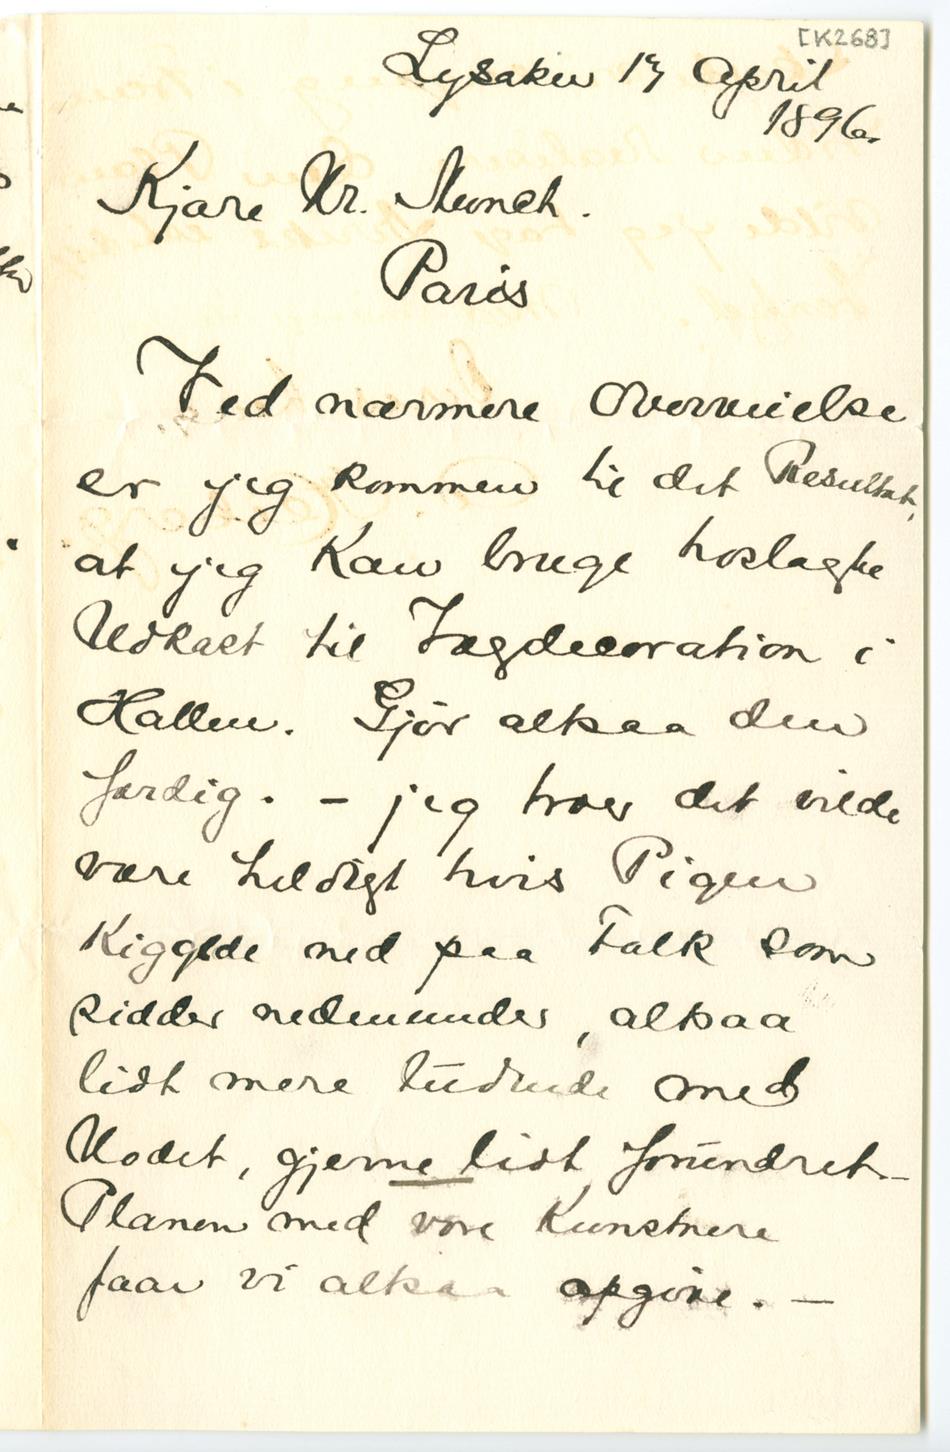 [K268]
Lysaker 17 April
1896.
Kjære Hr. Munch.
Paris
Ved nærmere Overveielse
er jeg kommen til det Resultat,
at jeg kan bruge hoslagte
Udkast til Vægdecoration i
Hallen. Gjör altsaa den
færdig. – jeg troer det vilde
være heldigt hvis Pigen
kiggede ned paa Folk som
sidder nedenunder, altsaa
lidt mere ludende med
Hodet, gjerne lidt forundret. –
Planen med vore Kunstnere
faar vi altsaa opgive. –